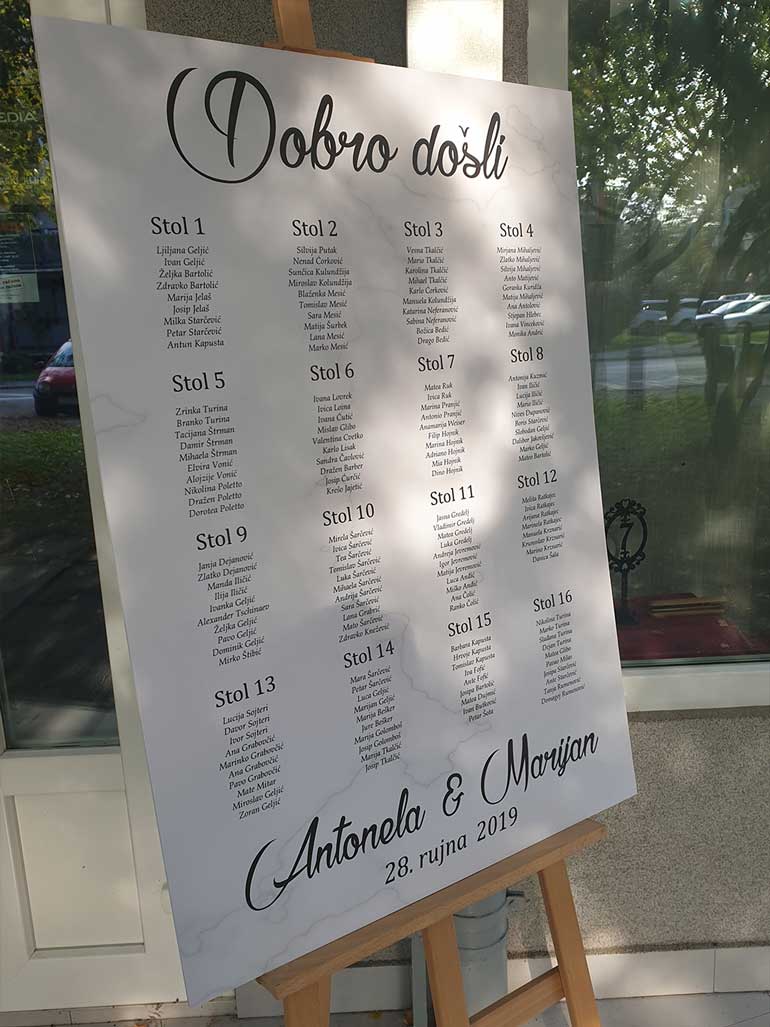 EDIA
Dobro došli
Stol 1
Ljiljana Geljić
Ivan Geljić
Željka Bartolić
Zdravko Bartolić
Marija Jelaš
Josip Jelaš
Milka Starčević
Petar Starčević
Antun Kapusta
Stol 2
Silvija Putak
Nenad Ćorković
Sunčica Kulundžija
Miroslav Kolundžija
Blaženka Mesić
Tomislav Mesić
Sara Mesić
Matija Šurbek
Lana Mesić
Marko Mesić
Stol 3
Vesna Tkalčić
Mario Tkalčić
Karolina Tkalčić
Mihael Tkalčić
Karlo Ćorković
Manuela Kolundžija
Katarina Neferanović
Sabina Neferanović
Božica Bedić
Drago Bedić
Stol 4
Mirjana Mihaljević
Zlatko Mihaljević
Silvija Mihaljević
Anto Matijević
Goranka Kuridža
Matija Mihaljević
Ana Antolović
Stjepan Hlebec
Ivana Vinceković
Monika Andrić
Stol 5
Zrinka Turina
Branko Turina
Tacijana Štrman
Damir Štrman
Mihaela Štrman
Elvira Vonić
Alojzije Vonić
Nikolina Poletto
Dražen Poletto
Dorotea Poletto
Stol 6
Ivana Lovrek
Ivica Loina
Ivana Čutić
Mislav Glibo
Valentina Cvetko
Karlo Lisak
Sandra Čaolović
Dražen Barber
Josip Čurčić
Krešo Jajetić
Stol 7
Matea Ruk
Ivica Ruk
Marina Pranjić
Antonio Pranjić
Anamarija Weiser
Filip Hojnik
Marina Hojnik
Adriano Hojnik
Mia Hojnik
Dino Hojnik
Stol 8
Antonija Kuzmić
Ivan Iličić
Lucija Iličić
Mario Iličić
Nives Dupanović
Boris Starčević
Slobodan Geljić
Dalibor Jakovljević
Marko Geljić
Mateo Bartolić
Stol 9
Janja Dejanović
Zlatko Dejanović
Manda Iličić
Ilija Iličić
Ivanka Geljić
Alexander Tschinaev
Željka Geljić
Pavo Geljić
Dominik Geljić
Mirko Štibić
Stol 10
Mirela Šarčević
Ivica Šarčević
Tea Šarčević
Tomislav Šarčević
Luka Šarčević
Mihaela Šarčević
Andrija Šarčević
Sara Šarčević
Lana Grabrić
Mato Šarčević
Zdravko Knežević
Stol 11
Jasna Gredelj
Vladimir Gredelj
Matea Gredelj
Luka Gredelj
Andreja Jevremović
Igor Jevremović
Matija Jevremović
Luca Andić
Milko Andić
Ana Čolić
Ranko Čolić
Stol 12
Melita Ratkajec
Ivica Ratkajec
Arijana Ratkajec
Marinela Ratkajec
Manuela Krznarić
Krunoslav Krznarić
Marino Krznarić
Danica Šala
Stol 13
Lucija Sojteri
Davor Sojteri
Ivor Sojteri
Ana Grabovčić
Marinko Grabovčić
Ana Grabovčić
Pavo Grabovčić
Mate Mitar
Miroslav Geljić
Zoran Geljić
Stol 14
Mara Šarčević
Petar Šarčević
Luca Geljić
Marijan Geljić
Marija Bešker
Jure Bešker
Marija Golomboš
Josip Golomboš
Marija Tkalčić
Josip Tkalčić
Stol 15
Barbara Kapusta
Hrvoje Kapusta
Tomislav Kapusta
Iva Fofić
Ante Fofić
Josipa Bartolić
Matea Dujmić
Ivan Butković
Petar Šota
Stol 16
Nikolina Turina
Marko Turina
Slađana Turina
Dejan Turina
Matea Glibo
Pavao Milas
Josipa Starčević
Ante Starčević
Tanja Rumenović
Domagoj Rumenović
Antonela & Marijan
28. rujna 2019
7